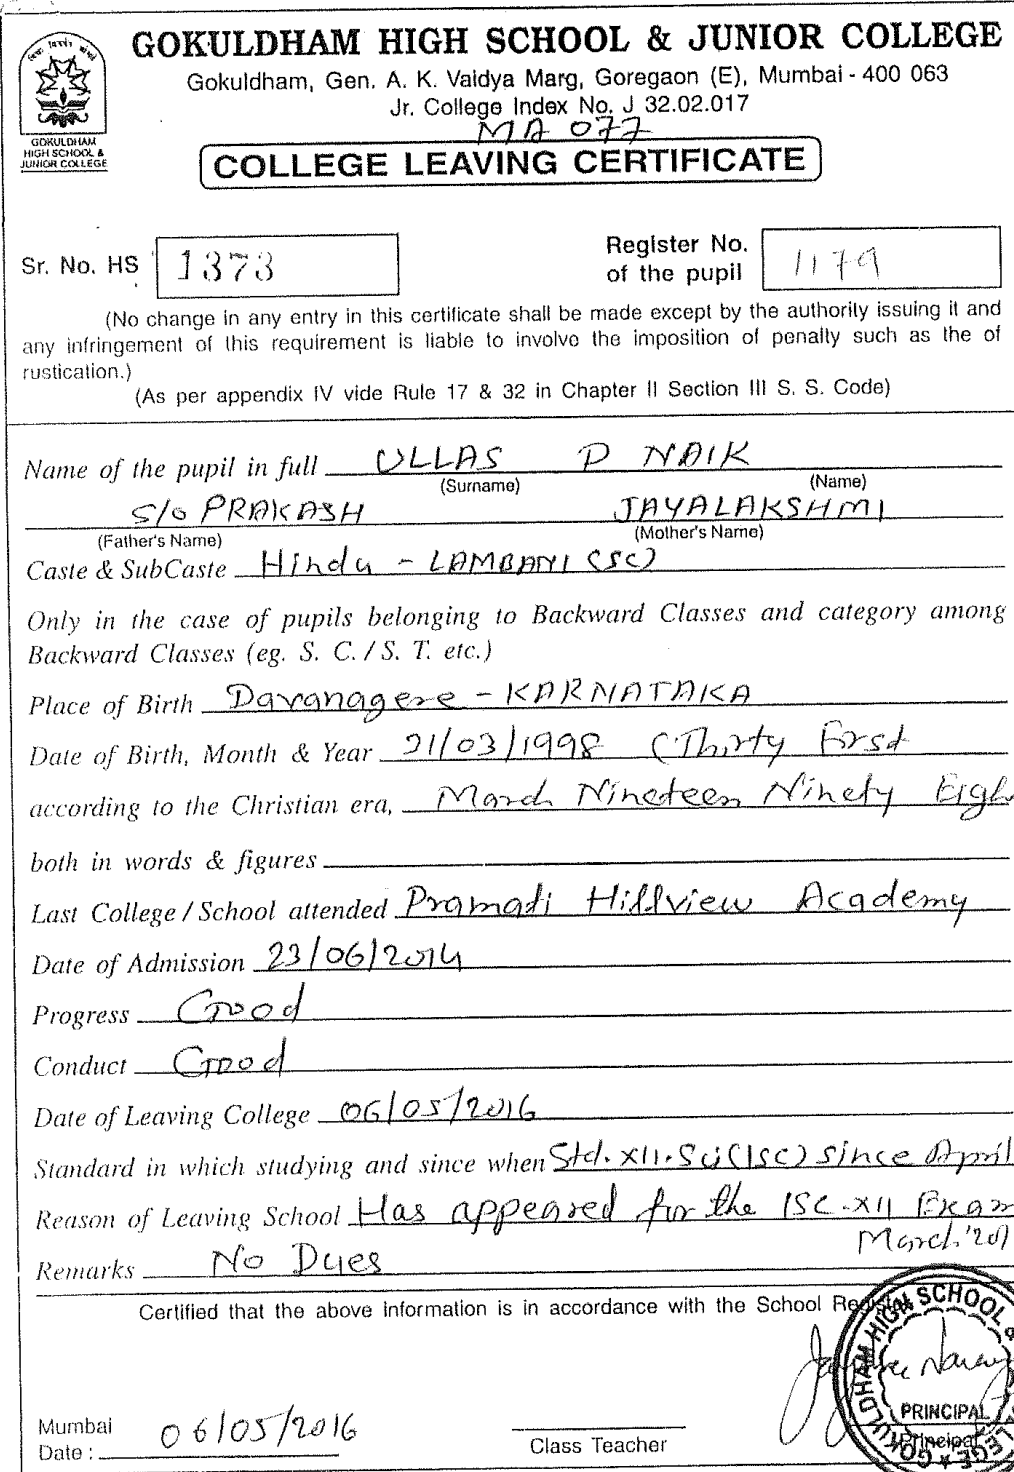 GOKULDHAM HIGH SCHOOL & JUNIOR COLLEGE
Gokuldham, Gen. A. K. Vaidya Marg, Goregaon (E), Mumbai - 400 063
Jr. College Index No. J 32.02.017
MA 077
GOKULDHAM
HIGH SCHOOL &
JUNIOR COLLEGE
COLLEGE LEAVING CERTIFICATE
Sr. No. HS 1373
Register No.
of the pupil 1179
(No change in any entry in this certificate shall be made except by the authority issuing it and
any infringement of this requirement is liable to involve the imposition of penalty such as the of
rustication.)
(As per appendix IV vide Rule 17 & 32 in Chapter II Section III S. S. Code)
Name of the pupil in full ULLAS P NAIK
(Surname) (Name)
S/o PRAKASH JAYALAKSHMI
(Father's Name) (Mother's Name)
Caste & SubCaste Hindu - LAMBANI (SC)
Only in the case of pupils belonging to Backward Classes and category among
Backward Classes (eg. S. C. / S. T. etc.)
Place of Birth Davanagere - KARNATAKA
Date of Birth, Month & Year 31/03/1998 (Thirty First
according to the Christian era, March Nineteen Ninety Eigh
both in words & figures
Last College / School attended Pramati Hillview Academy
Date of Admission 23/06/2014
Progress Good
Conduct Good
Date of Leaving College 06/05/2016
Standard in which studying and since when Std. XII. Sci (ISC) since April
Reason of Leaving School Has appeared for the ISC-XII Exam
March '20
Remarks No Dues
Certified that the above information is in accordance with the School Register
GOKULDHAM HIGH SCHOOL &
PRINCIPAL
Mumbai
Date : 06/05/2016
Class Teacher
Principal